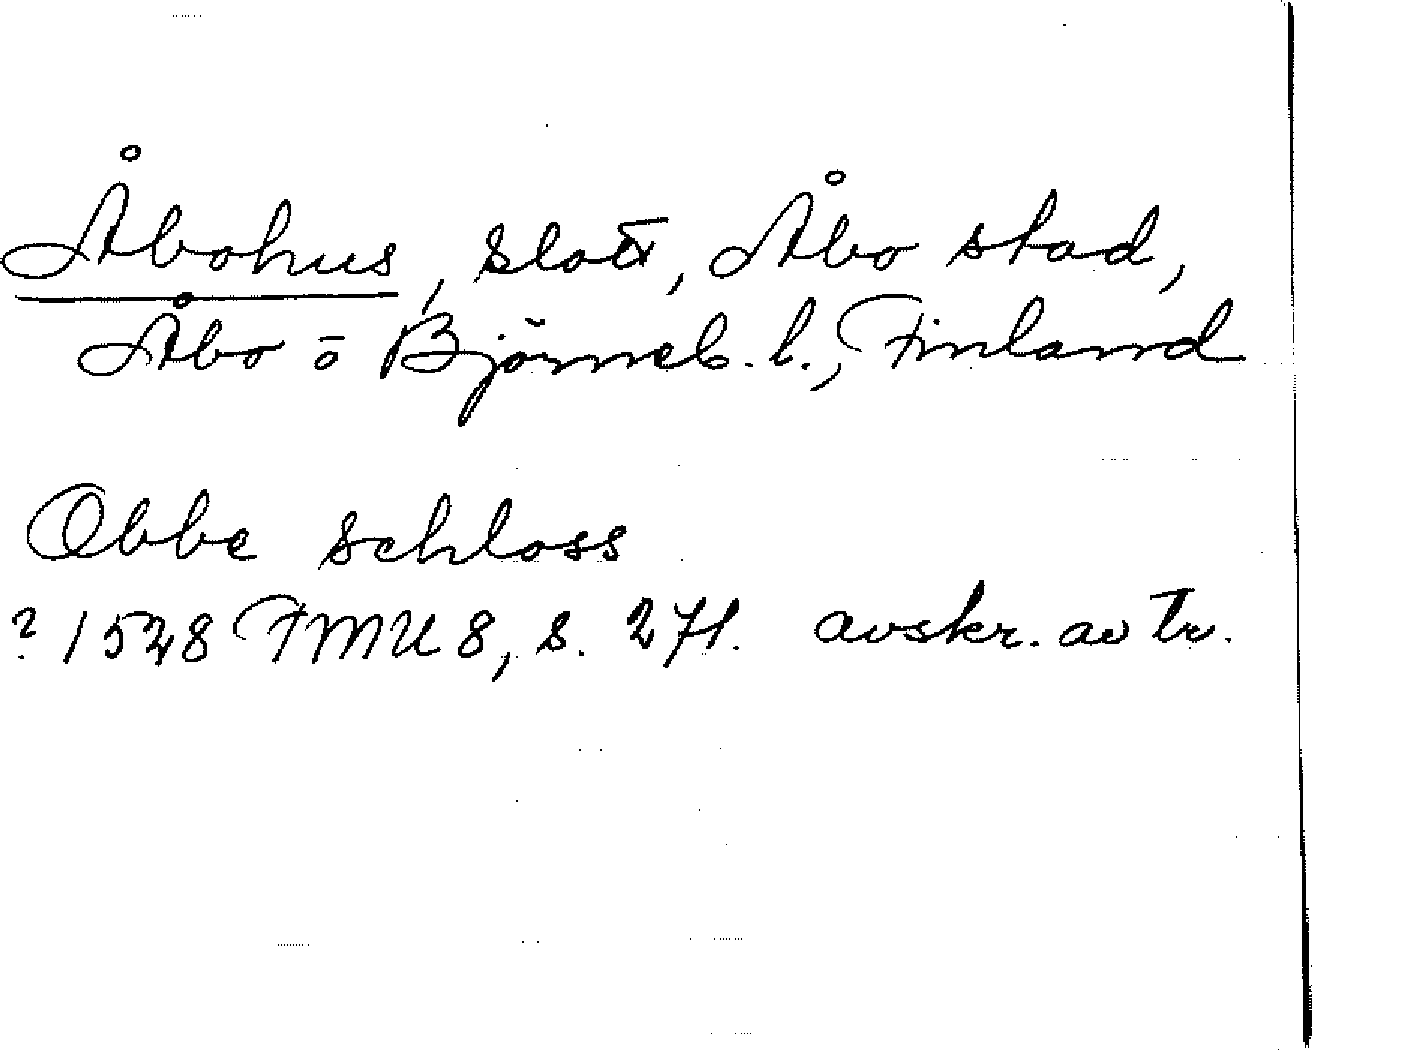 Åbohus, slott, Åbo stad,
Åbo o Björneb. l., Finland
Obbe schloss
? 1528 FMU 8, s. 271. avskr. av tr.